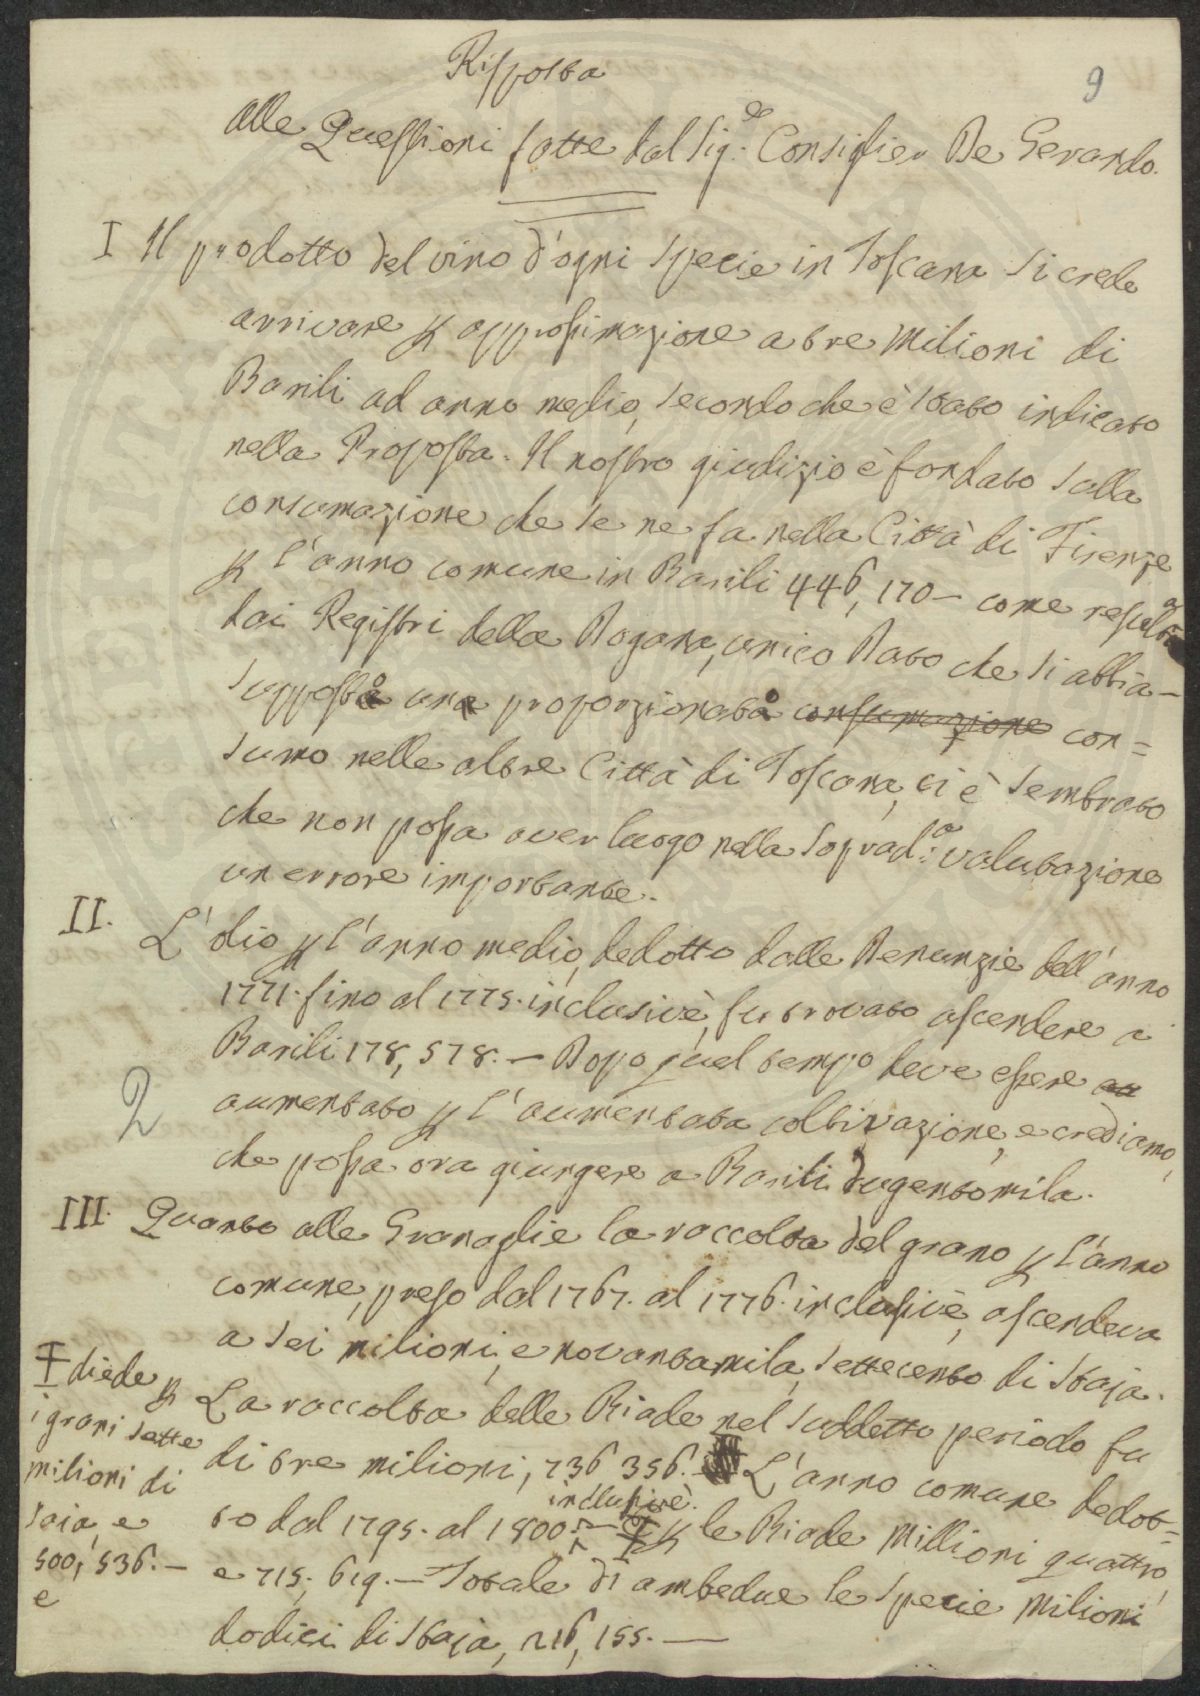 Risposta
9
alle Questioni fatte dal Sig.re Consiglier De Gerando.
I Il prodotto del vino d'ogni specie in Toscana si crede
arrivare p approssimazione a tre Milioni di
Barili ad anno medio, secondo che è stato indicato
nella Proposta. Il nostro giudizio è fondato sulla
consumazione che se ne fa nella Città di Firenze
p l'anno comune in Barili 446,170 – come resulta
dai Registri della Dogana, unico Dato che si abbia –
Supposto un proporzionato consumazione con=
sumo nelle altre Città di Toscana, ci è sembrato
che non possa aver luogo nella soprad.a valutazione
un errore importante.
II. L'olio p l'anno medio, dedotto dalle Denunzie dell'anno
1771. fino al 1775. inclusivè, fu trovato ascendere a
Barili 178,578. – Dopo quel tempo deve essere
2
aumentato p l'aumentata coltivazione, e crediamo,
che possa ora giungere a Barili dugentomila.
III. Quanto alle Granaglie la raccolta del grano p l'anno
comune, preso dal 1767. al 1776. inclusivè, ascendeva
a sei milioni, e novantamila, settecento di Staja.
La raccolta delle Biade nel suddetto periodo fu
di tre milioni, 736 356. – L'anno comune dedot=
inclusivè.
to dal 1795. al 1800. – Ŧ p le Biade Millioni quattro,
e 715, 619. – Totale di ambedue le specie Milioni
dodici di Staja, 216,155. —
Ŧ diede p
i grani sette
milioni di
saia, e
500,536. –
e